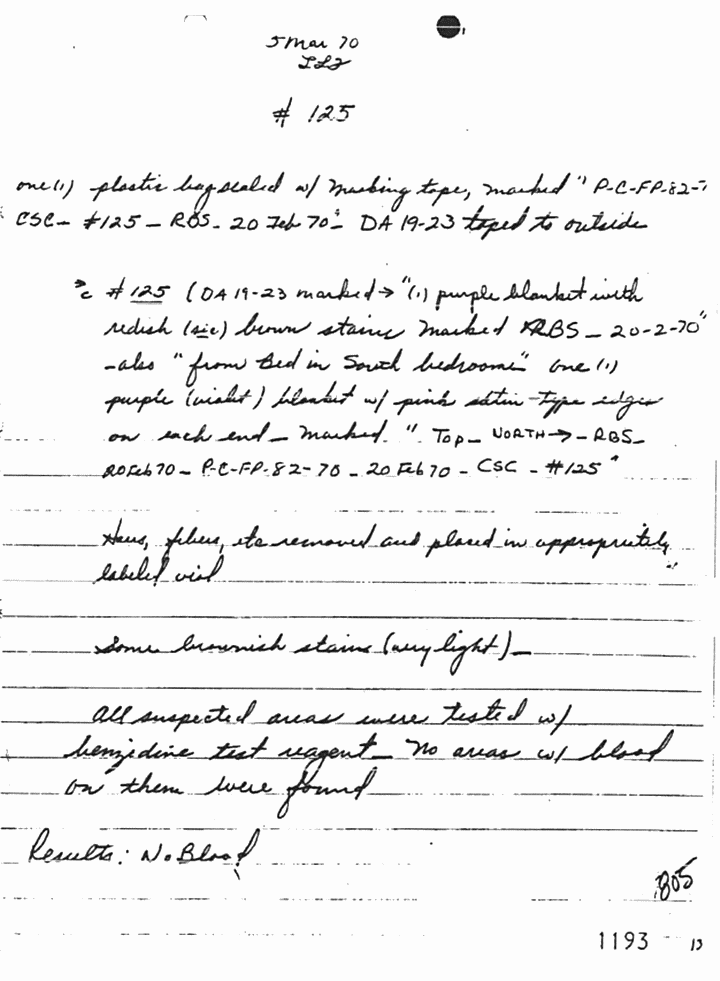 5 Mar 70
# 125
one (1) plastic bag sealed w/ masking tape, marked "P-C-FP-82-7
CSC - #125 - RBS - 20 Feb 70" - DA 19-23 taped to outside
#125 (DA 19-23 marked → "(1) purple blanket with
redish (sic) brown stains marked RBS - 20-2-70"
- also "from Bed in South bedroom" one (1)
purple (violet) blanket w/ pink satin-type edges
on each end - marked. "Top - NORTH → - RBS -
20 Feb 70 - P-C-FP-82-70 - 20 Feb 70 - CSC - #125"
Hairs, fibers, etc removed and placed in appropriately
labeled vial
Some brownish stains (very light) -
All suspected areas were tested w/
benzidine test reagent - No areas w/ blood
on them were found
Results: No Blood
805
1193 13